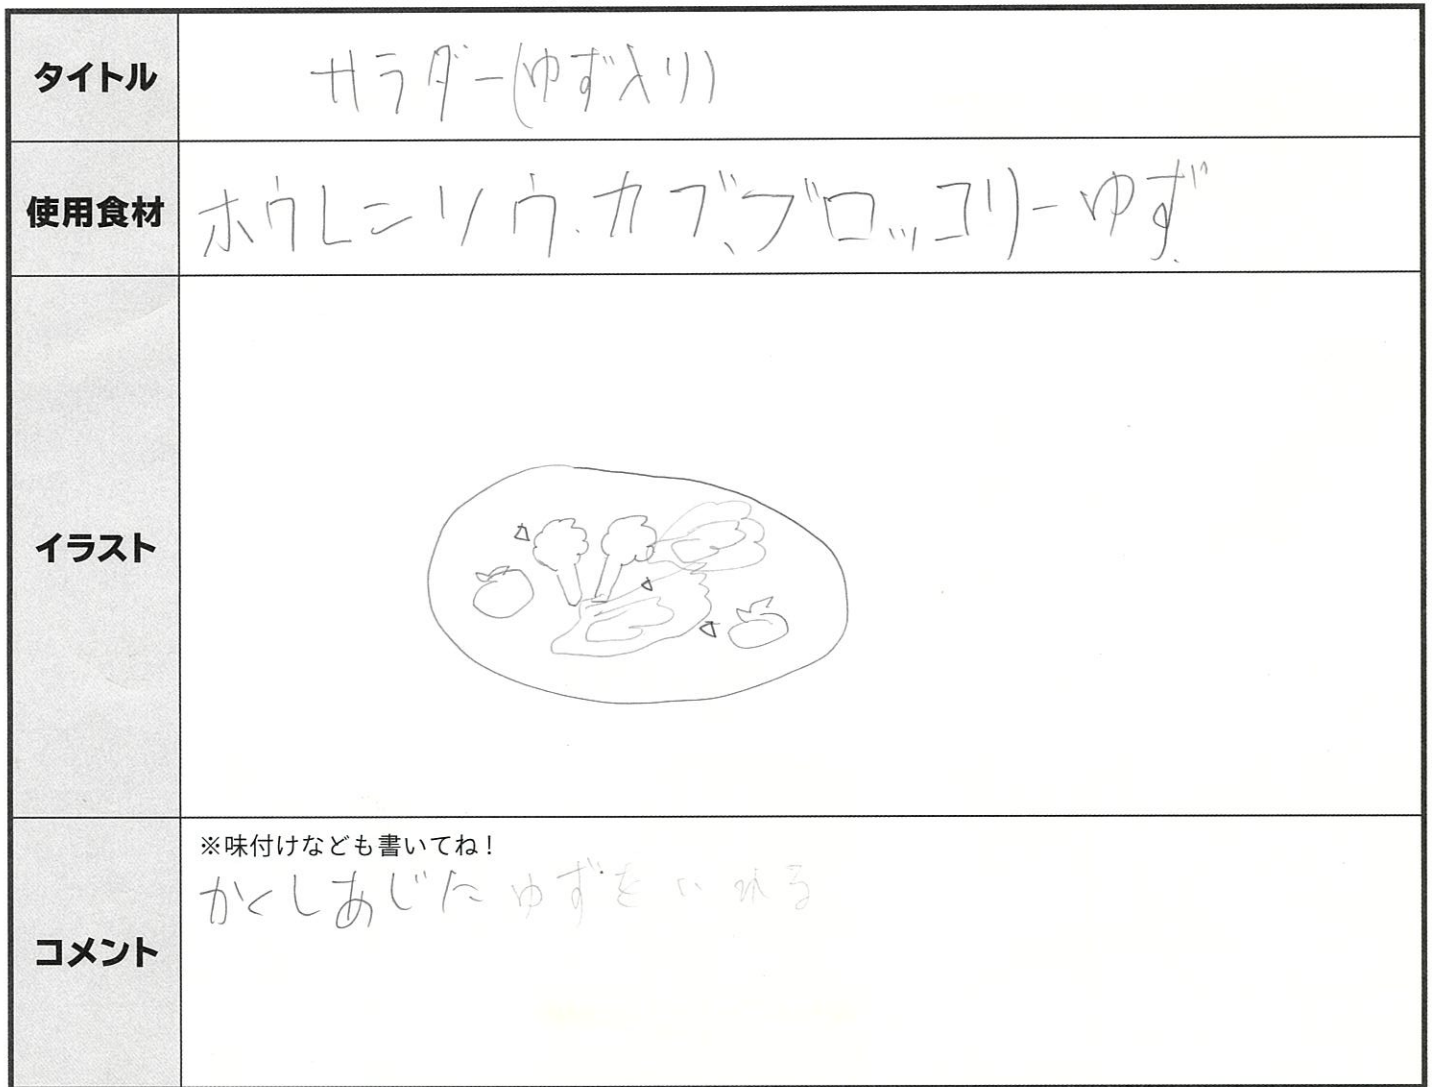 タイトル
サラダー(ゆず入り)
使用食材
ホウレンソウ.カブ、ブロッコリーゆず.
イラスト
コメント
※味付けなども書いてね！
かくしあじにゆずをいれる